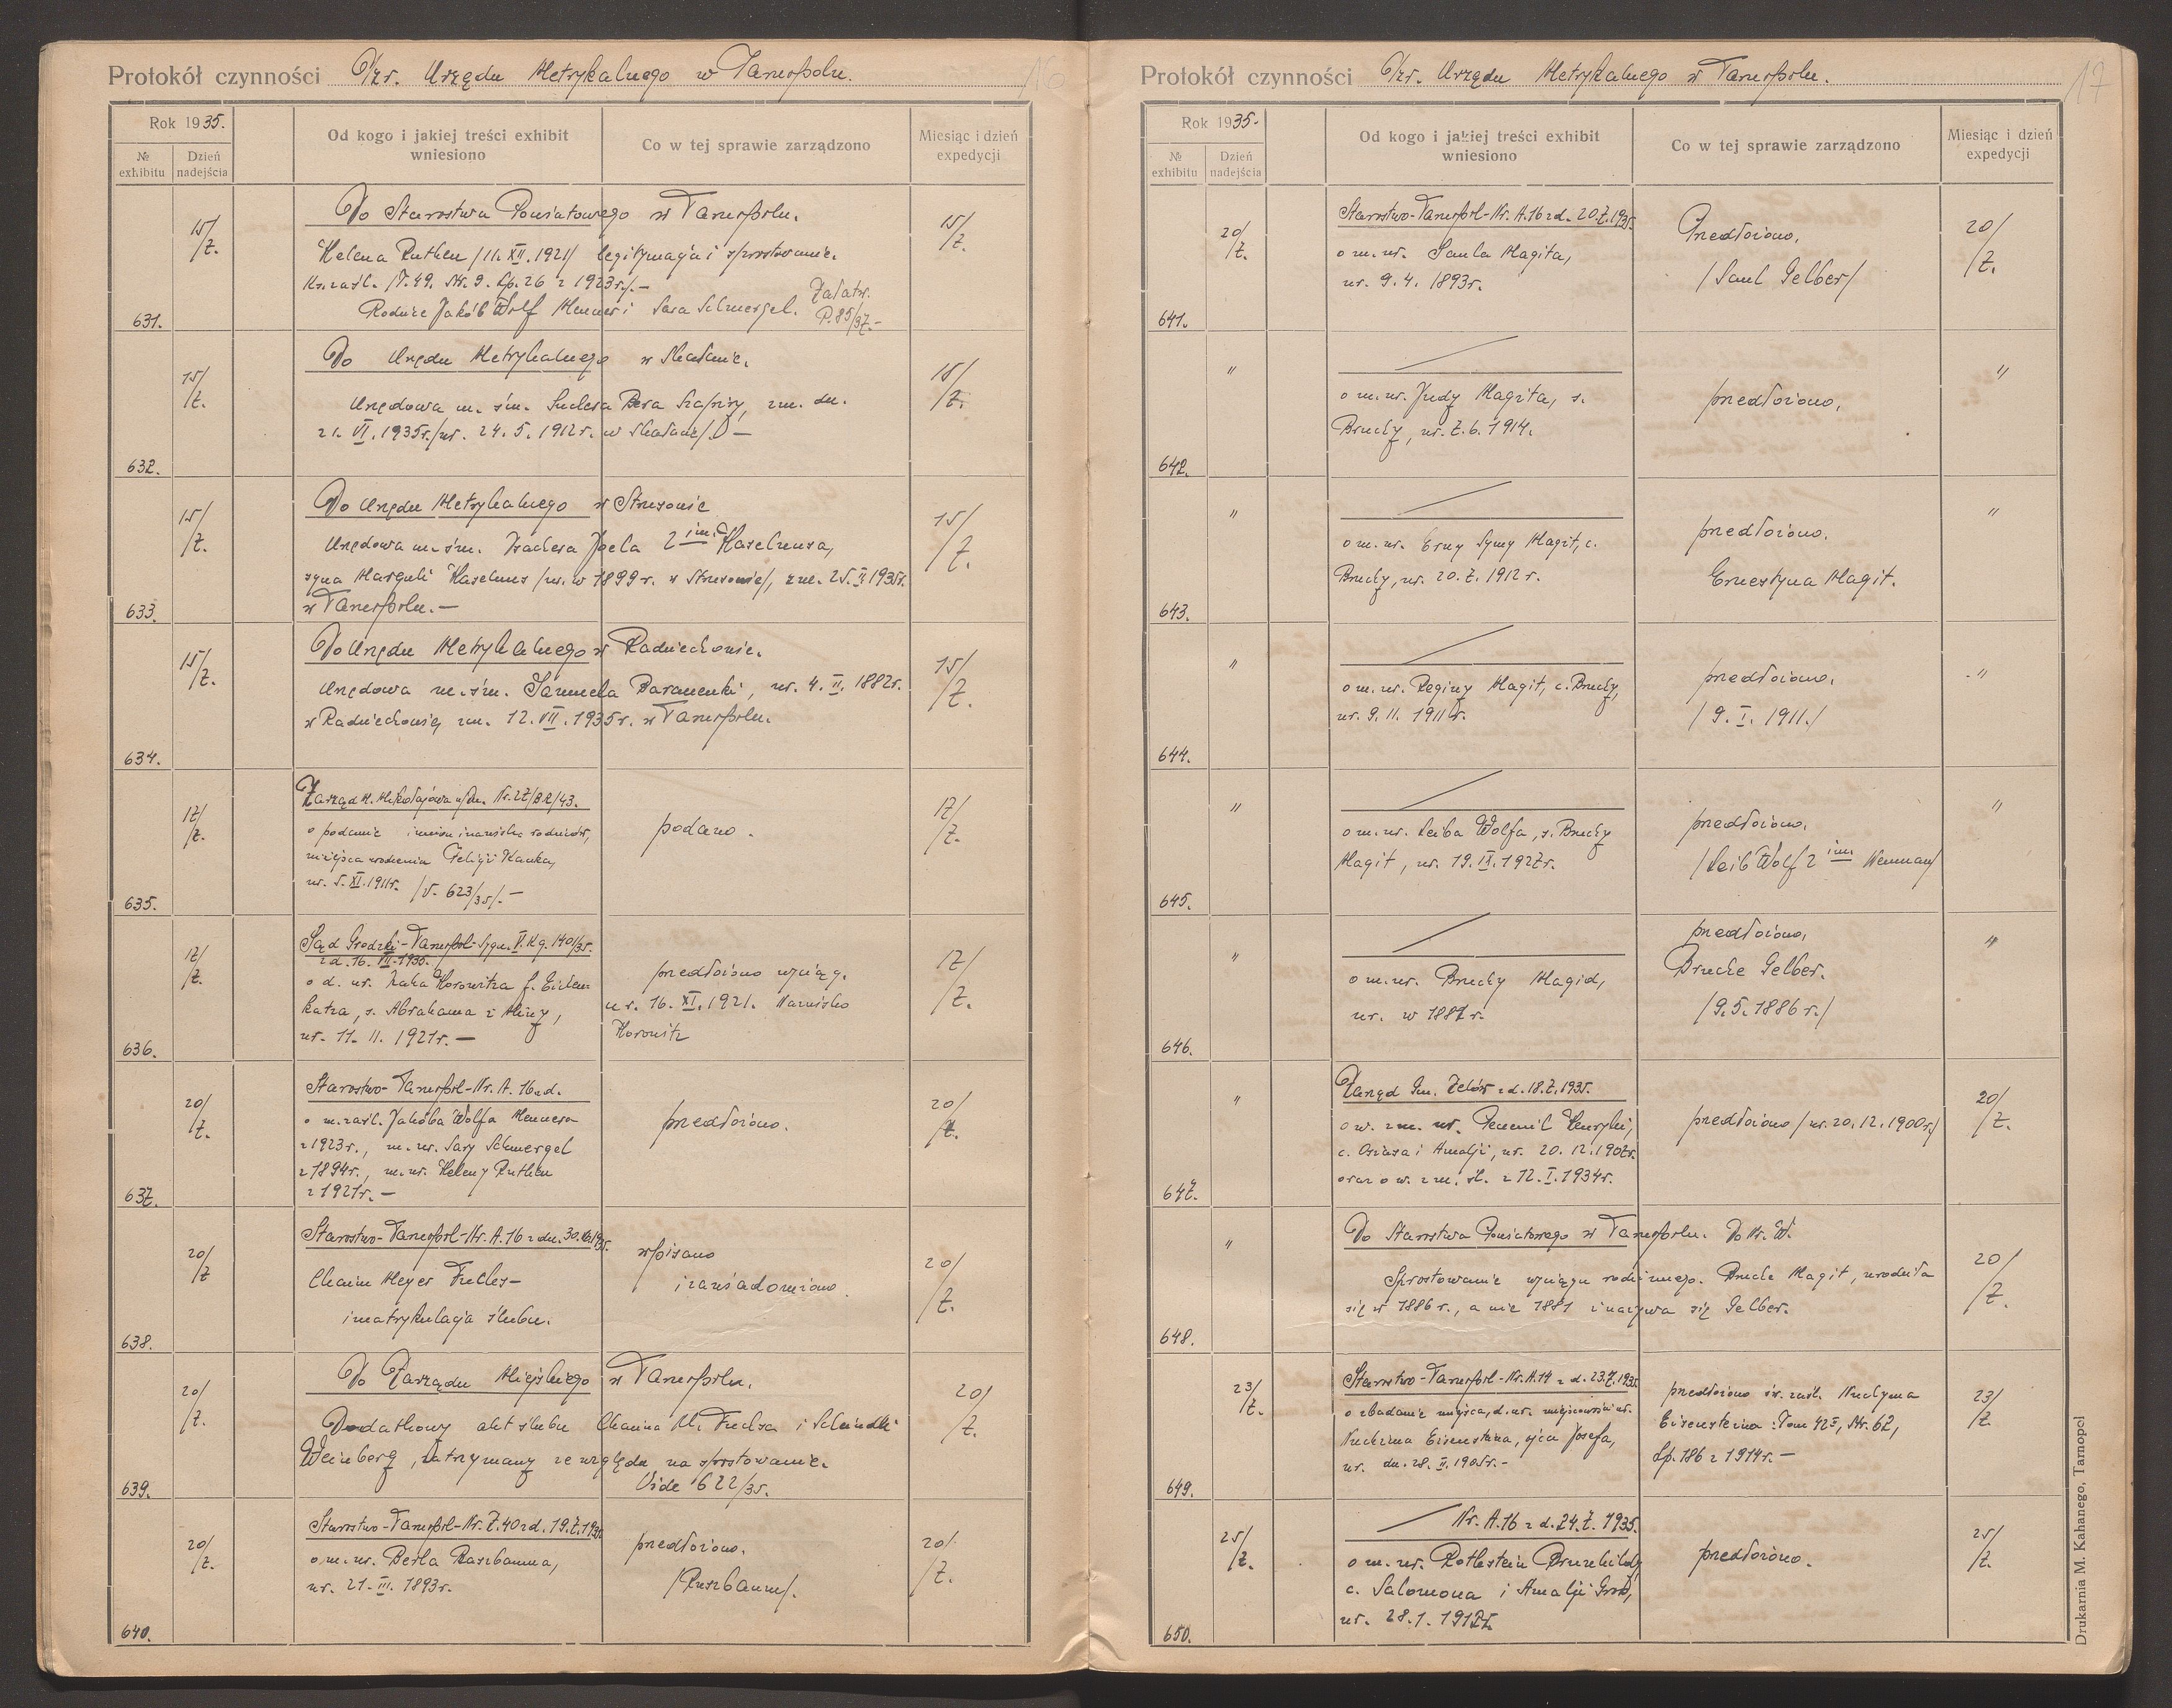 Protokół czynności Izr. Urzędu Metrykalnego w Tarnopolu.
16
Rok 1935.
№ exhibitu
Dzień nadejścia
Od kogo i jakiej treści exhibit
wniesiono
Co w tej sprawie zarządzono
Miesiąc i dzień
expedycji
631.
15/7.
Do Starostwa Powiatowego w Tarnopolu.
Helena Ruthen /11.XII.1921/ legitymacja i sprostowanie.
Ks. zaśl. T.49. Str. 9. Lp. 26 z 1923r./.-
Rodzice Jakób Wolf Menner i Sara Schmergel.
Załatw.
P.85/37.-
15/7.
632.
15/7.
Do Urzędu Metrykalnego w Skałacie.
Urzędowa m. śm. Suchera Bera Szapiry, zm. dn.
21.VI.1935r./ur. 24.5.1912r. w Skałacie/. -
15/7.
633.
15/7.
Do Urzędu Metrykalnego w Strusowie
Urzędowa m. śm. Joela 2 im. Haselnusa,
syna Marguli Haselnus /ur. w 1899r. w Strusowie/, zm. 25.II.1935r.
w Tarnopolu.-
15/7.
634.
15/7.
Do Urzędu Metrykalnego w Radziechowie.
Urzędowa m. śm. Samuela Baranenki, ur. 4.II.1882r.
w Radziechowie, zm. 12.VII.1935r. w Tarnopolu.
15/7.
635.
17/7.
Zarząd M. Mikołajowa n/Dn. Nr. 27/BR/43.
o podanie imion i nazwiska rodziców,
miejsca urodzenia Feligji Kanka,
ur. 5.XI.1911r. /V. 623/35/.-
podano.
17/7.
636.
17/7.
Sąd Grodzki-Tarnopol-Sygn. V. Kg. 140/35.
z d. 16.VII.1935.
o d. ur. Horowitza f.
Katza, s. Abrahama i Miny,
ur. 11.11.1921r.-
przedłożono wyciąg.
ur. 16.XI.1921. Nazwisko
Horowitz
17/7.
637.
20/7.
Starostwo-Tarnopol-Nr. A.16 z d.
o m. zaśl. Jakóba Wolfa Mennera
z 1923r., m. ur. Sary Schmergel
z 1894r., m. ur. Heleny Ruthen
z 1921r.-
przedłożono.
20/7.
638.
20/7
Starostwo-Tarnopol-Nr. A.16 z dn. 30.
Chaim Meyer Fuchs-
imatrykulacja ślubu.
wpisano
i zawiadomiono.
20/7.
639.
20/7.
Do Zarządu Miejskiego w Tarnopolu.
Dodatkowy akt ślubu Chaima M. Fuchsa i Scheindli
Weinberg, zatrzymany ze względu na sprostowanie.
Vide 622/35.
20/7.
640.
20/7.
Starostwo-Tarnopol-Nr. Z.40 z d. 19.7.1935
o m. ur. Berla Raszbauma,
ur. 21.III.1893r.
przedłożono.
/Ruszbaum/.
20/7.
Protokół czynności Izr. Urzędu Metrykalnego w Tarnopolu.
17
Rok 1935.
№ exhibitu
Dzień nadejścia
Od kogo i jakiej treści exhibit
wniesiono
Co w tej sprawie zarządzono
Miesiąc i dzień
expedycji
641.
20/7.
Starostwo-Tarnopol-Nr. A.16 z d. 20.7.1935.
o m. ur. Saula Magita,
ur. 9.4.1893r.
Przedłożono.
/Saul Gelber/
20/7.
642.
"
o m. ur. Judy Magita, s.
Bruchy, ur. 7.6.1914.
przedłożono.
"
643.
"
o m. ur. Erny Symy Magit, c.
Bruchy, ur. 20.7.1912r.
przedłożono.
Ernestyna Magit.
"
644.
"
o m. ur. Reginy Magit, c. Bruchy,
ur. 9.11.1911r.
przedłożono.
/9.I.1911./
"
645.
"
o m. ur. Leiba Wolfa, s. Bruchy
Magit, ur. 19.IX.1927r.
przedłożono.
/Leib Wolf 2 im. Neuman/
"
646.
"
o m. ur. Bruchy Magid,
ur. w 1887r.
przedłożono,
Bruche Gelber.
/9.5.1886r./
"
647.
"
Zarząd Gm. Zelów z d. 18.7.1935.
o w. zm. ur. Henryki,
c. Oziasza i Amalji, ur. 20.12.1907r.
oraz o w. zm. śl. z 12.I.1934r.
przedłożono /ur. 20.12.1900r./
20/7.
648.
"
Do Starostwa Powiatowego w Tarnopolu. Do Nr. W.
Sprostowanie wyciągu rodzinnego. Bruche Magit, urodziła
się w 1886r., a nie 1881 i nazywa się Gelber.
20/7.
649.
23/7.
Starostwo-Tarnopol-Nr. A.14 z d. 23.7.1935
o zbadanie miejsca, d. ur. miejscowości ur.
Nuchima Eisensteina, ojca Josefa,
ur. dn. 28.II.1905r.-
przedłożono św. zaśl. Nuchyma
Eisensteina: Tom 42, Str. 62,
Lp. 186 z 1914r.-
23/7
650.
25/7.
Nr. A.16 z d. 24.7.1935.
o m. ur. Rothstein Brunhildy,
c. Salomona i Amalji Groß,
ur. 28.1.1912r.
przedłożono.
25/7.
Drukarnia M. Kahanego, Tarnopol